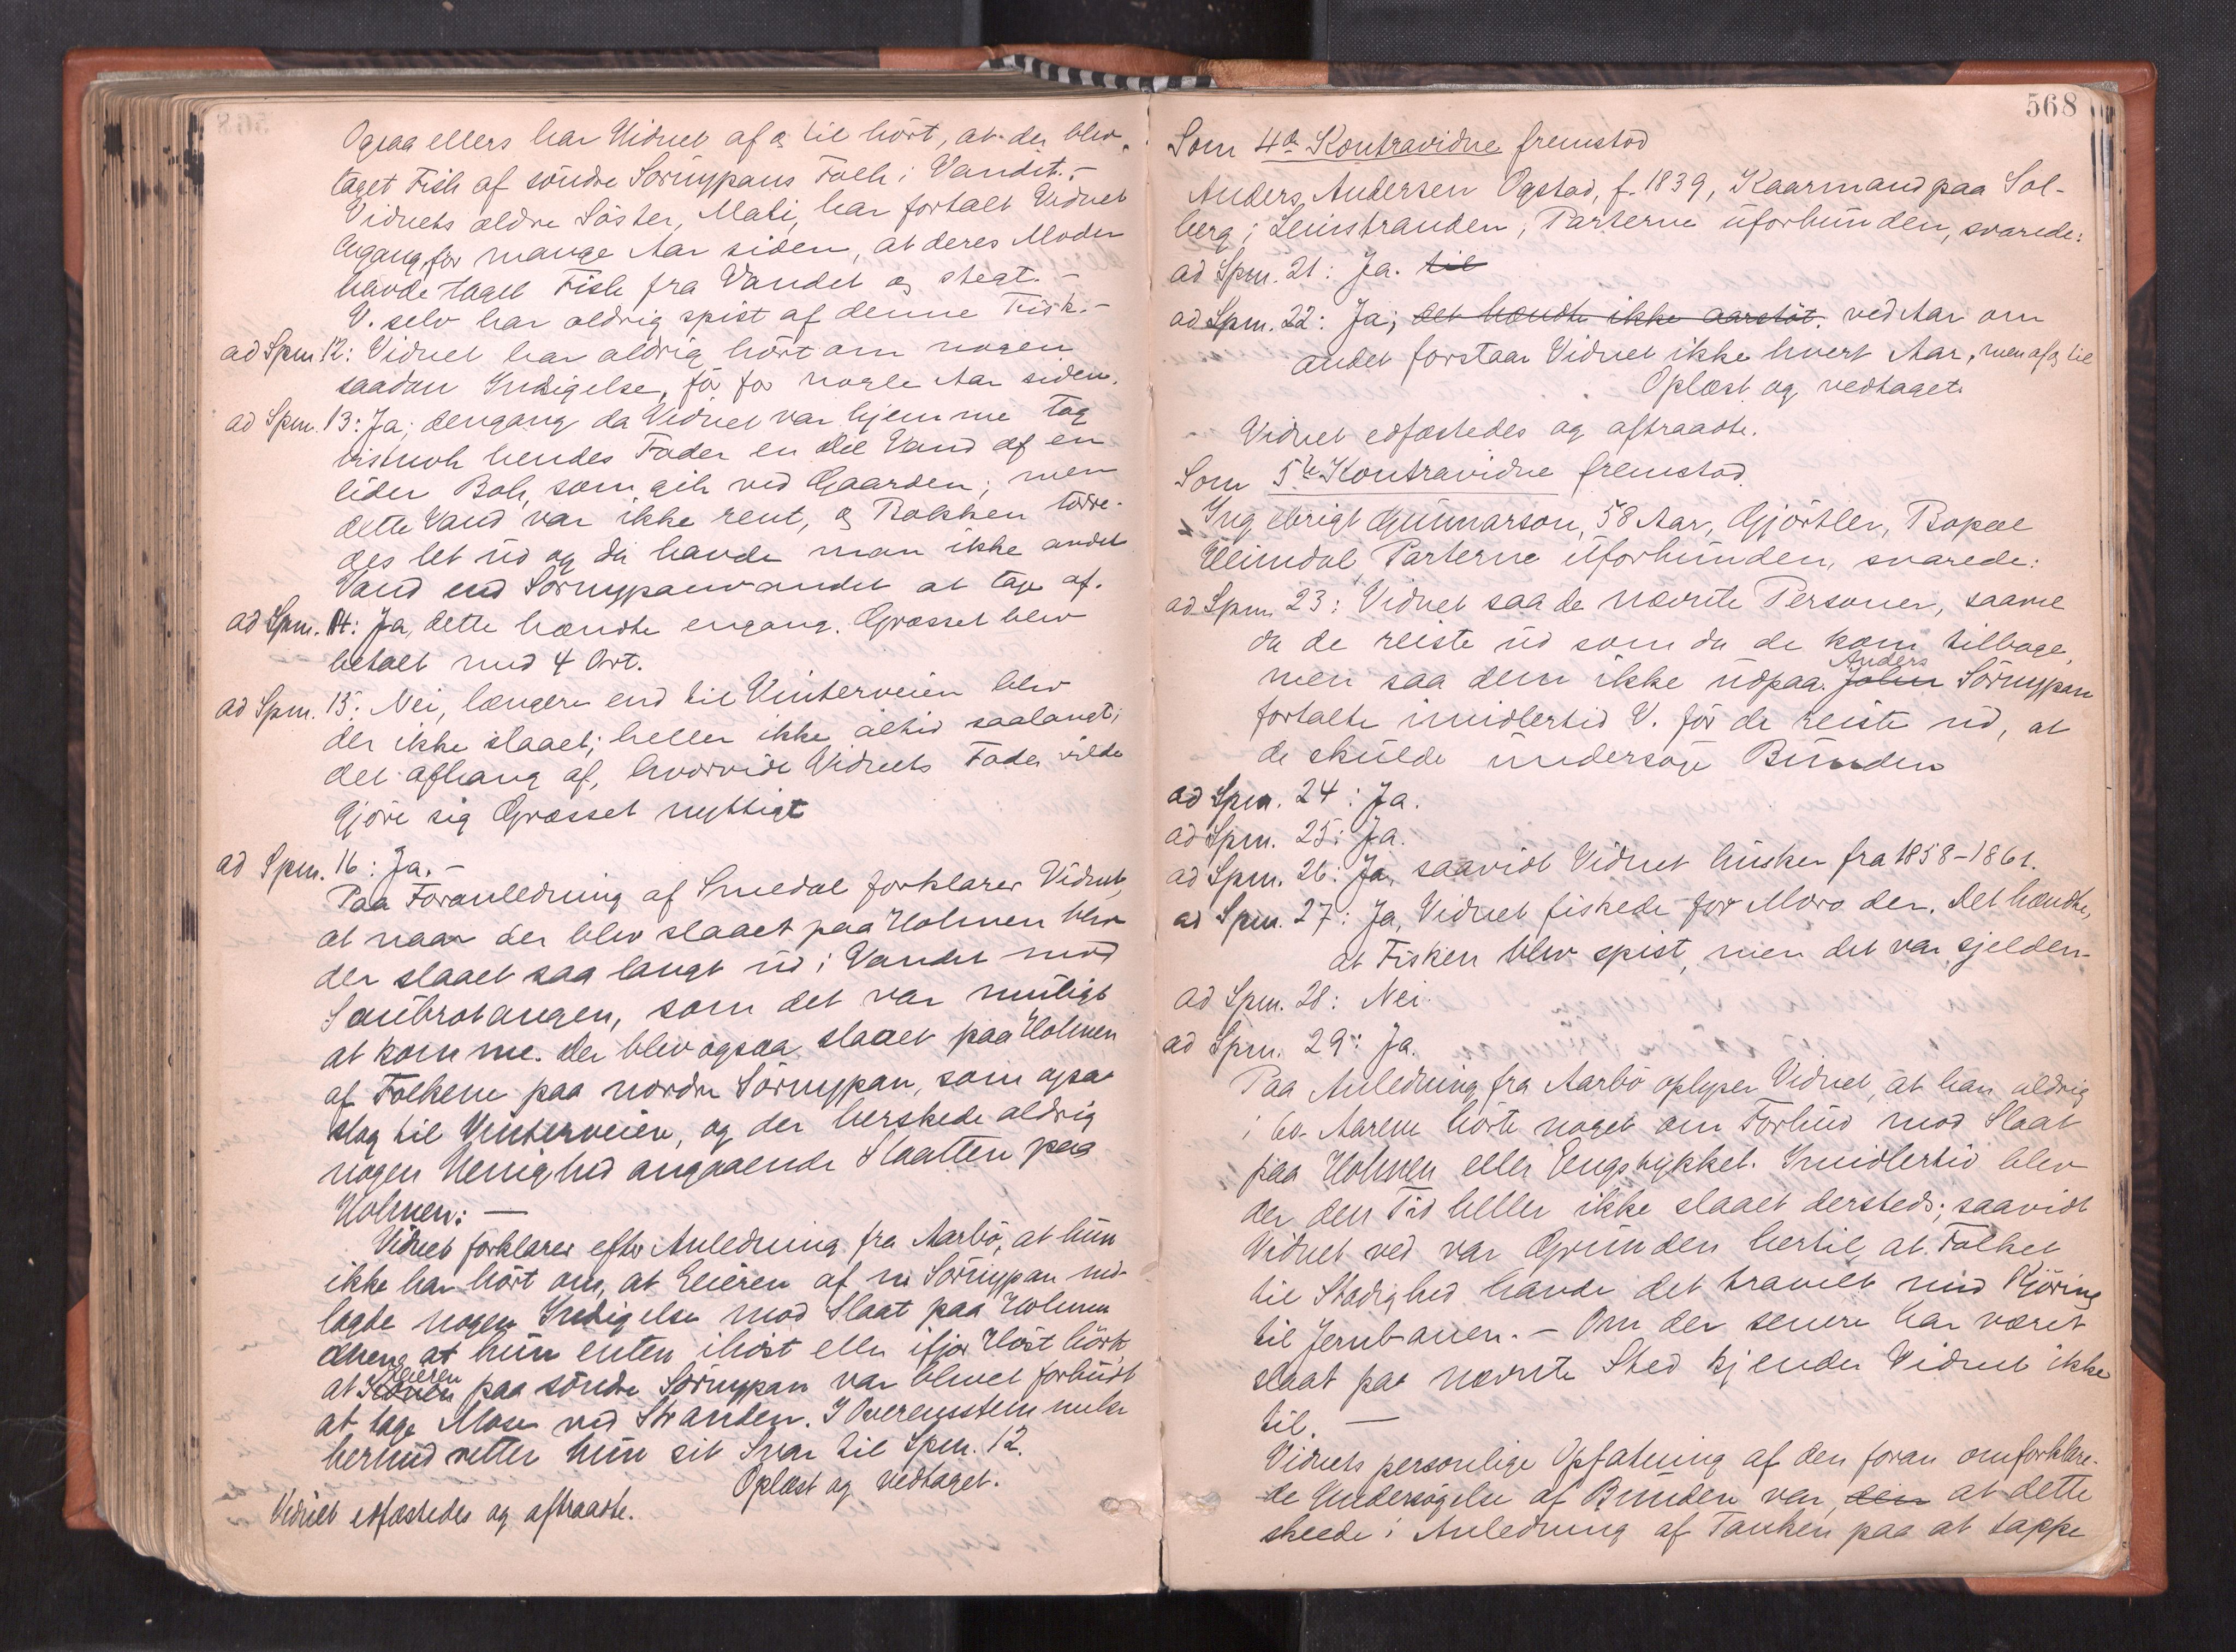 Ogsaa ellers har Vidnet af og til hört, at der blev
taget Fisk af söndre Sörnypans Folk i Vandet. –
Vidnets ældre Söster, Mali, har fortalt Vidnet
engang for mange Aar siden, at deres Moder
havde taget Fisk fra Vandet og stegt. –
V. selv har aldrig spist af denne Fisk. –
ad Spm. 12: Vidnet har aldrig hört om nogen
saadan Indsigelse, för for nogle Aar siden.
ad Spm. 13: Ja; dengang da Vidnet var hjemme tog
vistnok hendes Fader en Del Vand af en
liden Bæk, som gik ved Gaarden; men
dette Vand var ikke rent, og Bækken törre-
des let ud og da havde man ikke andet
Vand end Sörnypanvandet at tage af.
ad Spm. 14: Ja, dette hændte engang. Græsset blev
betalt med 4 Ort.
ad Spm. 15: Nei, længere end til Vinterveien blev
der ikke slaaet; heller ikke altid saalangt;
det afhang af, hvorvidt Vidnets Fader vilde
gjöre sig Græsset nyttigt
ad Spm. 16: Ja. –
Paa Foranledning af Smedal forklarer Vidnet,
at naar der blev slaaet paa Holmen blev
der slaaet saa langt ud i Vandet mod
Saubrotangen, som det var muligt
at komme. Der blev ogsaa slaaet paa Holmen
af Folkene paa nordre Sörnypan, som ogsaa
slog til Vinterveien, og der herskede aldrig
nogen Uenighed angaaende Slaatten paa
Holmen: –
Vidnet forklarer efter Anledning fra Aarbö, at hun
ikke har hört om, at Eieren af n. Sörnypan ned-
lagde nogen Indsigelse mod Slaat paa Holmen
at hun enten ihöst eller ifjor Höst hörte,
Eieren
at paa söndre Sörnypan var blevet forbudt
at tage Mose ved Stranden. I Overensstemmelse
hermed retter hun sit Svar til Spm. 12.
Oplæst og vedtaget.
Vidnet edfæstedes og aftraadte.
568
Som 4de Kontravidne fremstod
Anders Andersen Ogstad, f. 1839, Kaarmand paa Sol-
berg i Leinstranden, Parterne uforbunden, svarede:
ad Spm. 21: Ja. til
ad Spm. 22: Ja; det hændte ikke aarstöt. ved Aar om
andet forstaar Vidnet ikke hvert Aar, men af og til
Oplæst og vedtaget.
Vidnet edfæstedes og aftraadte.
Som 5te Kontravidne fremstod
Ingebrigt Gunnarson, 58 Aar, Gjörtler, Bopæl
Heimdal Parterne uforbunden, svarede:
ad Spm. 23: Vidnet saa de nævnte Personer, saavel
da de reiste ud som da de kom tilbage,
Anders
men saa dem ikke udpaa. John Sörnypan
fortalte imidlertid V. för de reiste ud, at
de skulde undersöge Bunden
ad Spm. 24: Ja.
ad Spm. 25: Ja.
ad Spm. 26: Ja, saavidt Vidnet husker fra 1858–1861.
ad Spm. 27: Ja, Vidnet fiskede for Moro der. Det hændte,
at Fisken blev spist, men det var sjelden.
ad Spm. 28: Nei.
ad Spm. 29: Ja.
Paa Anledning fra Aarbö oplyser Vidnet, at han aldrig
i 60-Aarene hörte noget om Forbud mod Slaat
paa Holmen eller Engstykket. Imidlertid blev
der den Tid heller ikke slaaet dersteds; saavidt
Vidnet ved var Grunden hertil, at Folket
til Stadighed havde det travelt med Kjöring
til Jernbanen. – Om der senere har været
slaat paa nævnte Sted kjender Vidnet ikke
til. –
Vidnets personlige Opfatning af den foran omforklare-
de Undersögelse af Bunden var, den at dette
skeede i Anledning af Tanken paa at tappe